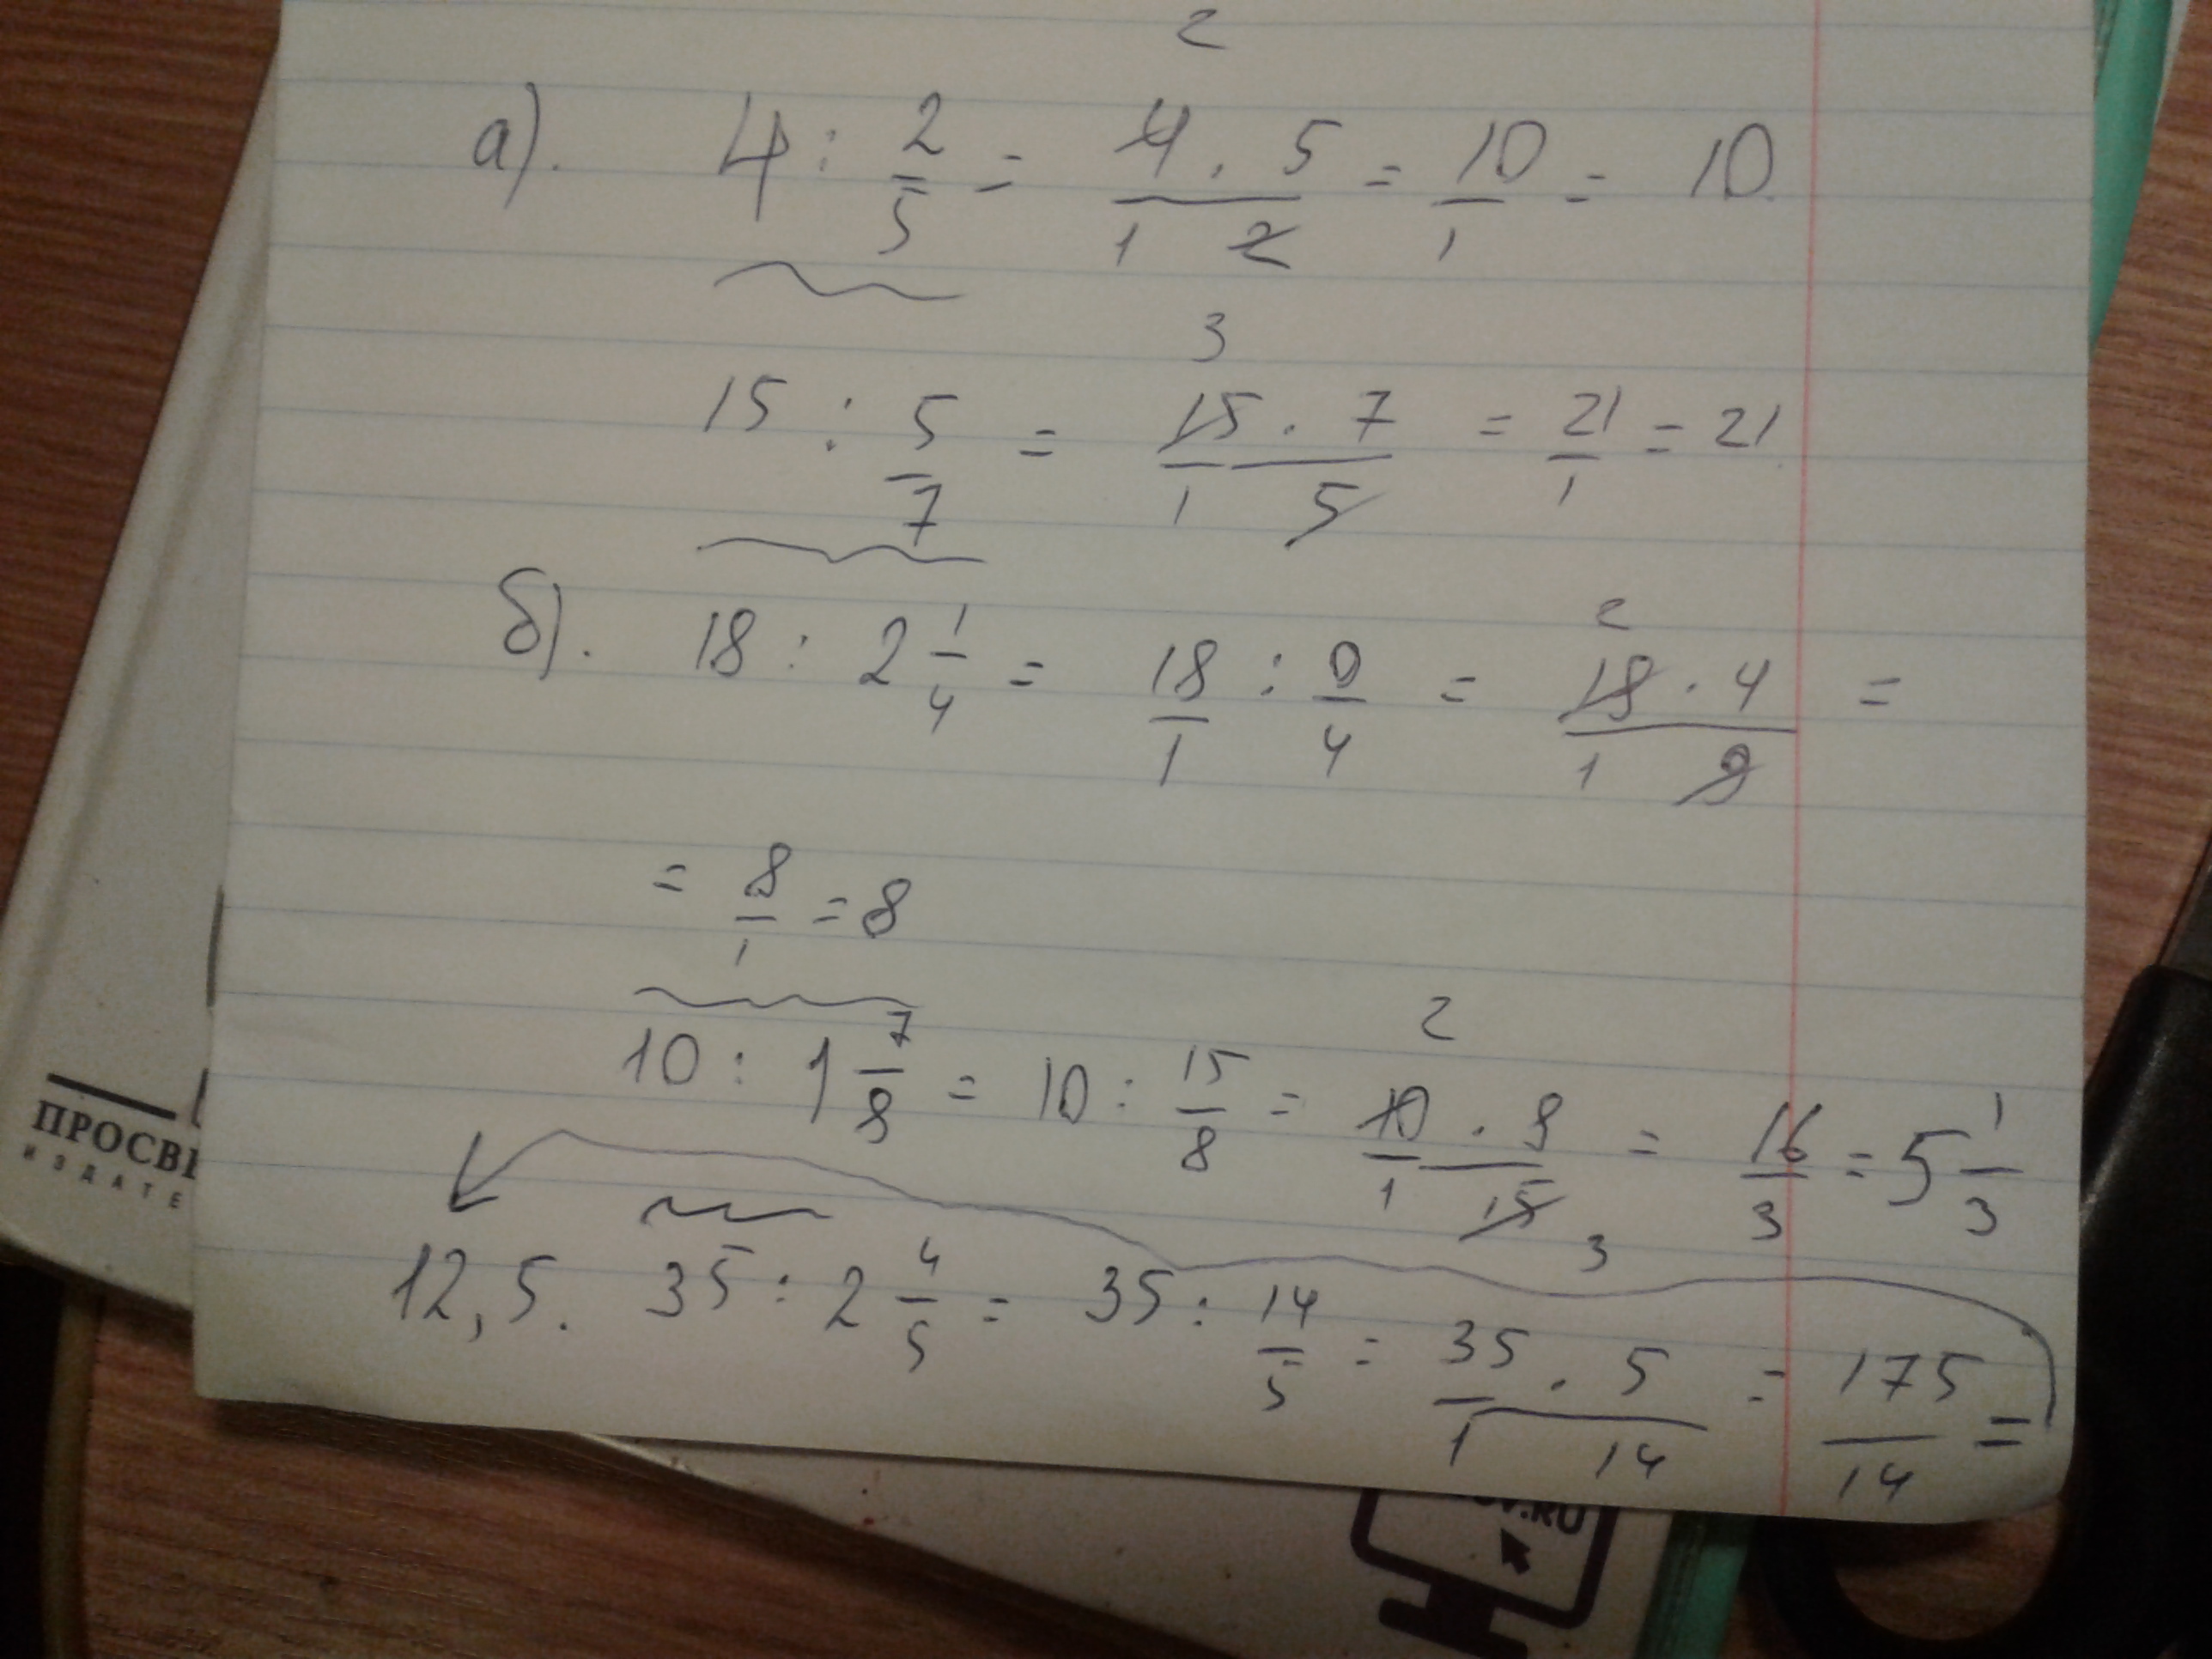 а). 4 : 2/5 = 4 · 5 / 1 2 = 10/1 = 10
2
15 : 5/7 = 15 · 7 / 1 5 = 21/1 = 21
3
б). 18 : 2 1/4 = 18/1 : 9/4 = 18 · 4 / 1 9 =
2
= 8/1 = 8
10 : 1 7/8 = 10 : 15/8 = 10 · 8 / 1 15 = 16/3 = 5 1/3
2
3
12,5. 35 : 2 4/5 = 35 : 14/5 = 35 · 5 / 1 14 = 175/14 =
ПРОСВ
ИЗДАТЕ
.RU